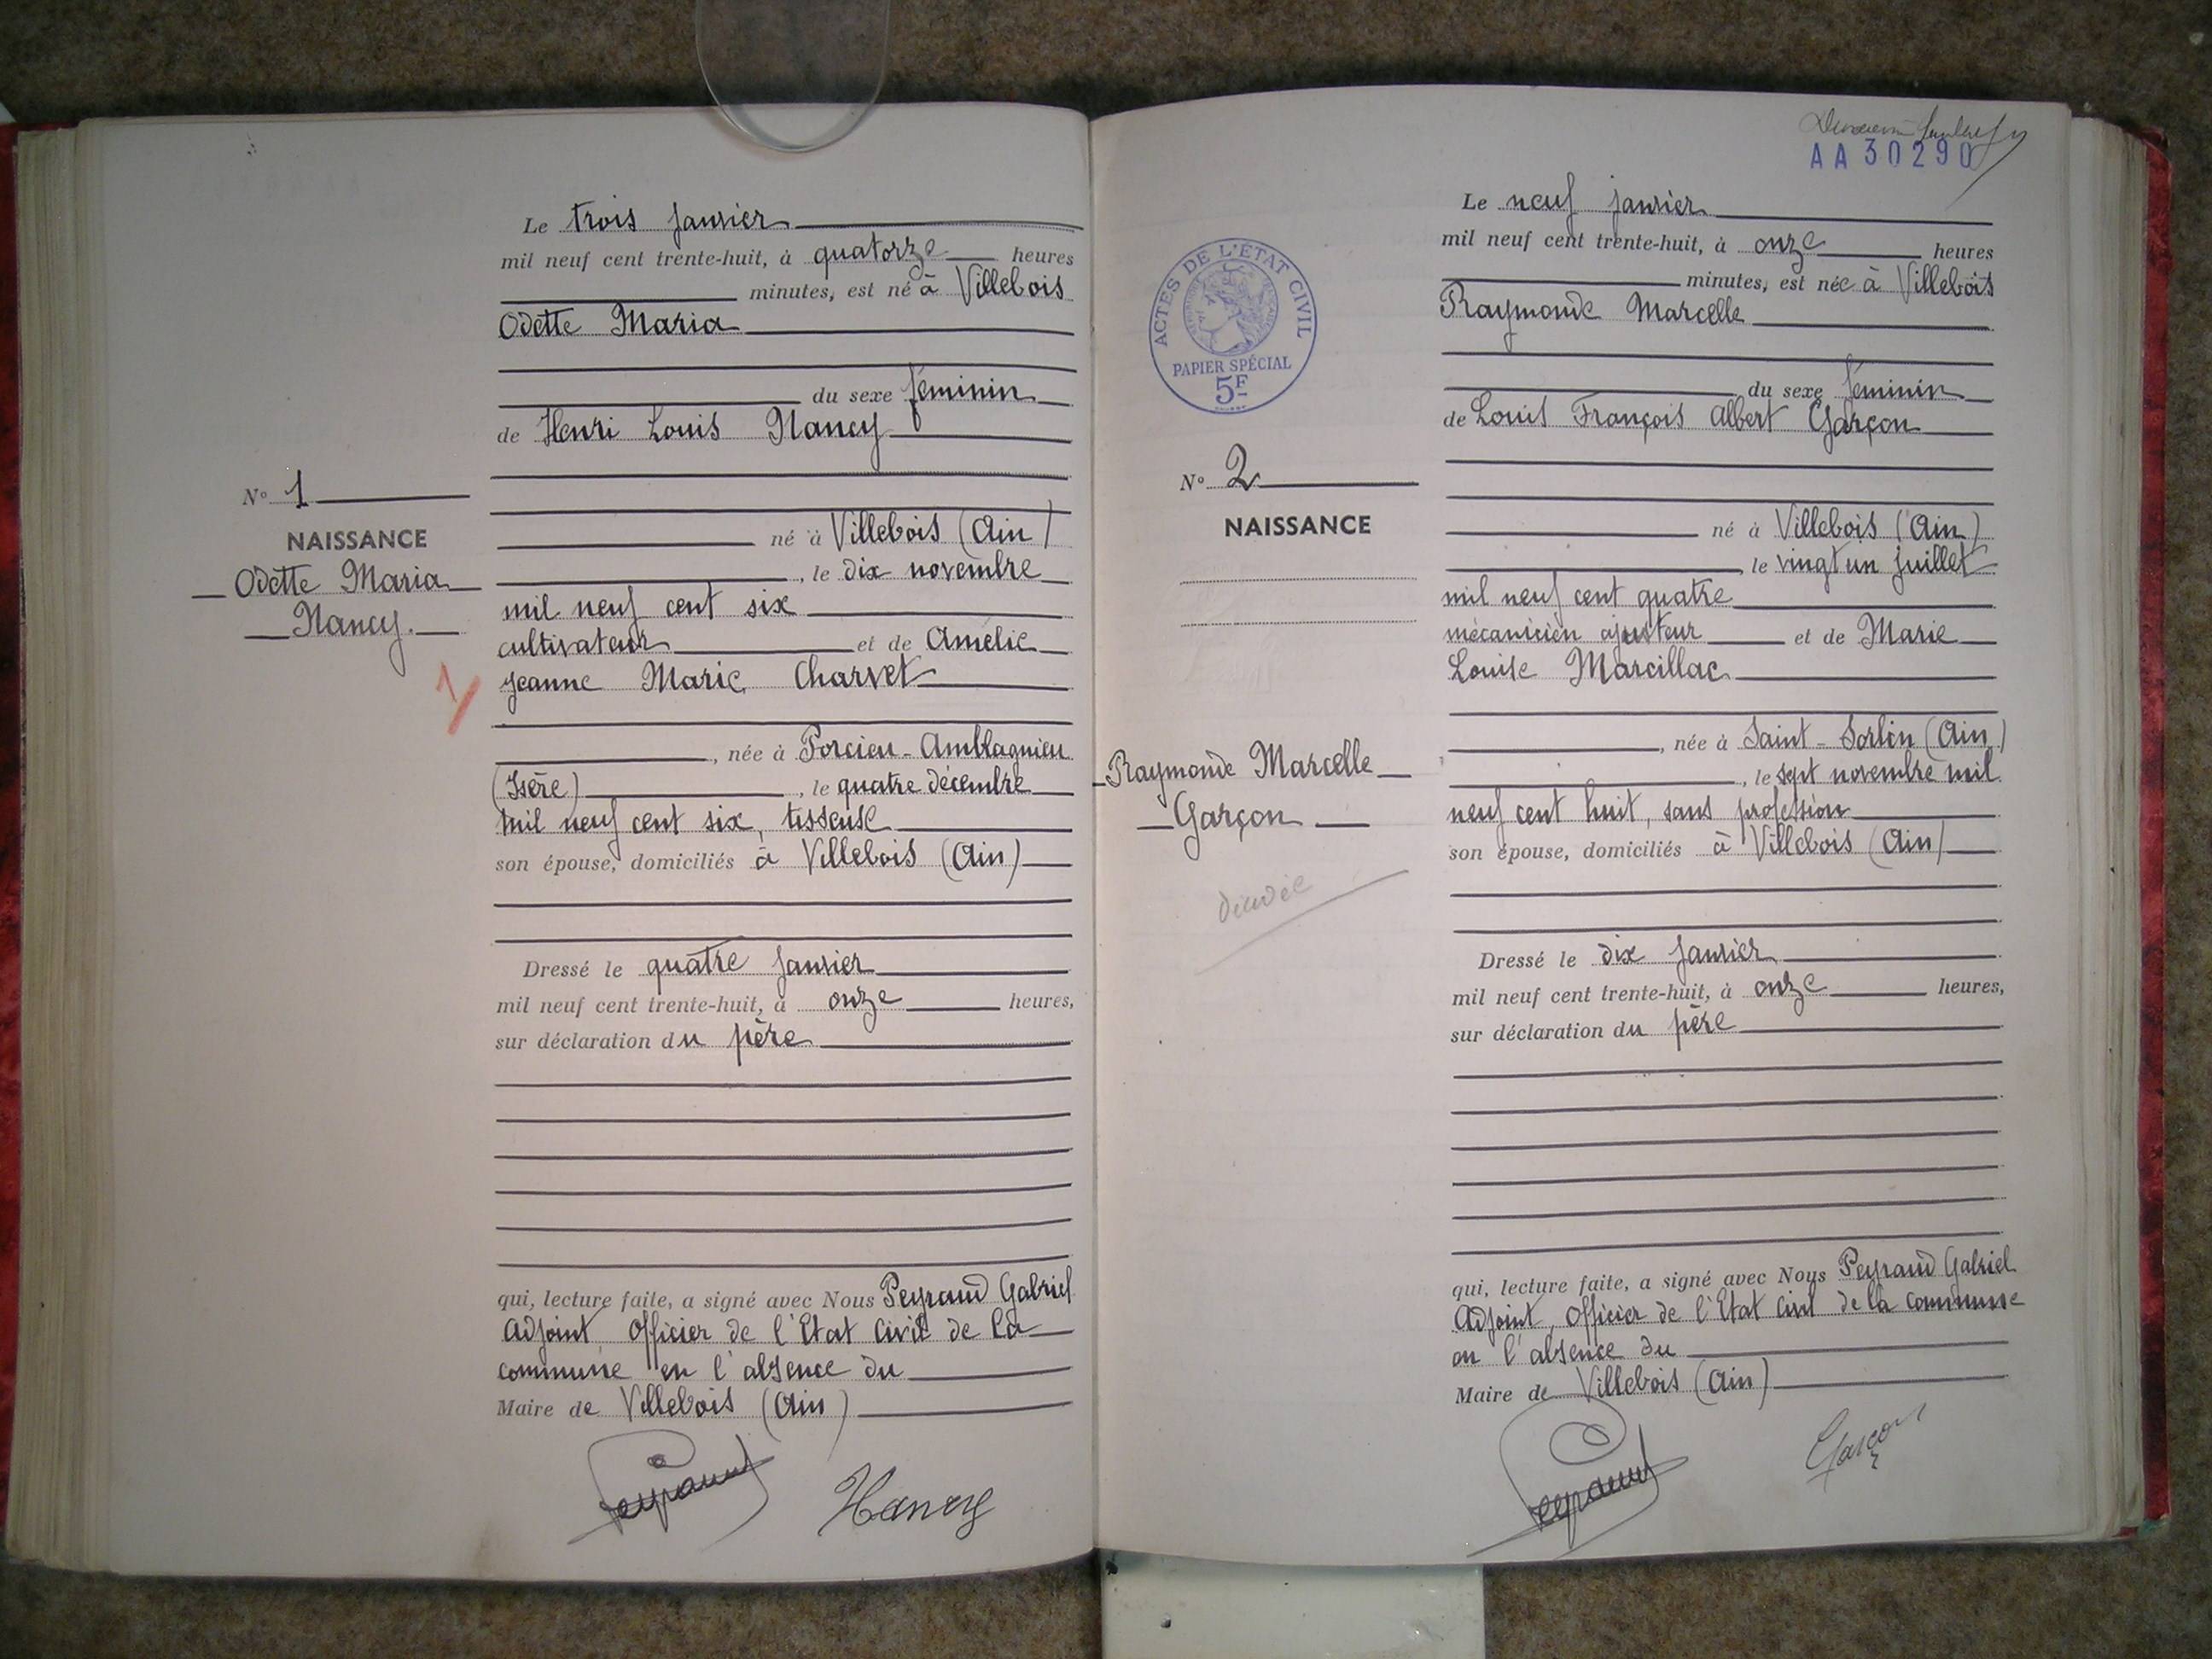 Le trois janvier
mil neuf cent trente-huit, à quatorze heures
minutes, est né à Villebois
Odette Maria
du sexe féminin
de Henri Louis Nancy
N° 1
NAISSANCE
Odette Maria
Nancy.
né à Villebois (Ain)
, le dix novembre
mil neuf cent six
cultivateur et de Amélie
Jeanne Marie Charvet
1/
, née à Porcieu-Amblagnieu
(Isère) , le quatre décembre
mil neuf cent six, tisseuse
son épouse, domiciliés à Villebois (Ain)
Dressé le quatre janvier
mil neuf cent trente-huit, à onze heures,
sur déclaration du père
qui, lecture faite, a signé avec Nous Peyraud Gabriel
Adjoint Officier de l'Etat Civil de la
commune en l'absence du
Maire de Villebois (Ain)
Peyraud
Nancy
AA30290
Le neuf janvier
mil neuf cent trente-huit, à onze heures
minutes, est née à Villebois
Raymonde Marcelle
ACTES DE L'ÉTAT CIVIL
PAPIER SPÉCIAL
5F
du sexe féminin
de Louis François Albert Garçon
N° 2
NAISSANCE
Raymonde Marcelle
Garçon
né à Villebois (Ain)
, le vingt un juillet
mil neuf cent quatre
mécanicien ajusteur et de Marie
Louise Marcillac
, née à Saint-Sorlin (Ain)
, le sept novembre mil
neuf cent huit, sans profession
son épouse, domiciliés à Villebois (Ain)
Dressé le dix janvier
mil neuf cent trente-huit, à onze heures,
sur déclaration du père
qui, lecture faite, a signé avec Nous Peyraud Gabriel
Adjoint, Officier de l'Etat Civil de la commune
en l'absence du
Maire de Villebois (Ain)
Peyraud
Garçon